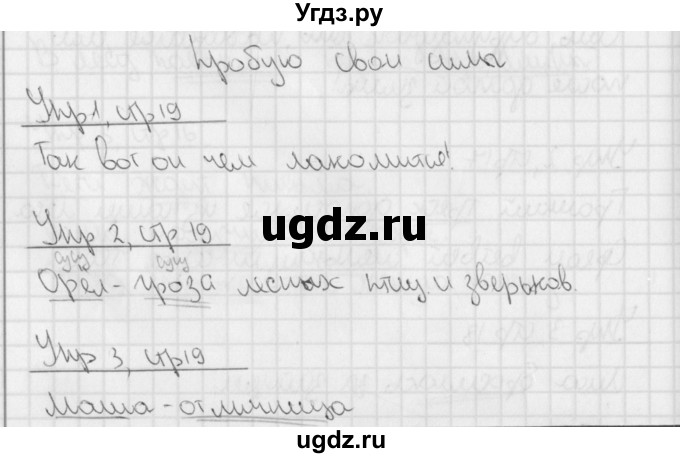 Угдз.ру
Пробую свои силы
Упр 1, стр 19
Так вот он чем лакомится!
Упр 2, стр 19
сущ сущ
Орёл - гроза лесных птиц и зверьков.
Упр 3, стр 19
Маша - отличница
ugdz.ru
ugdz.ru